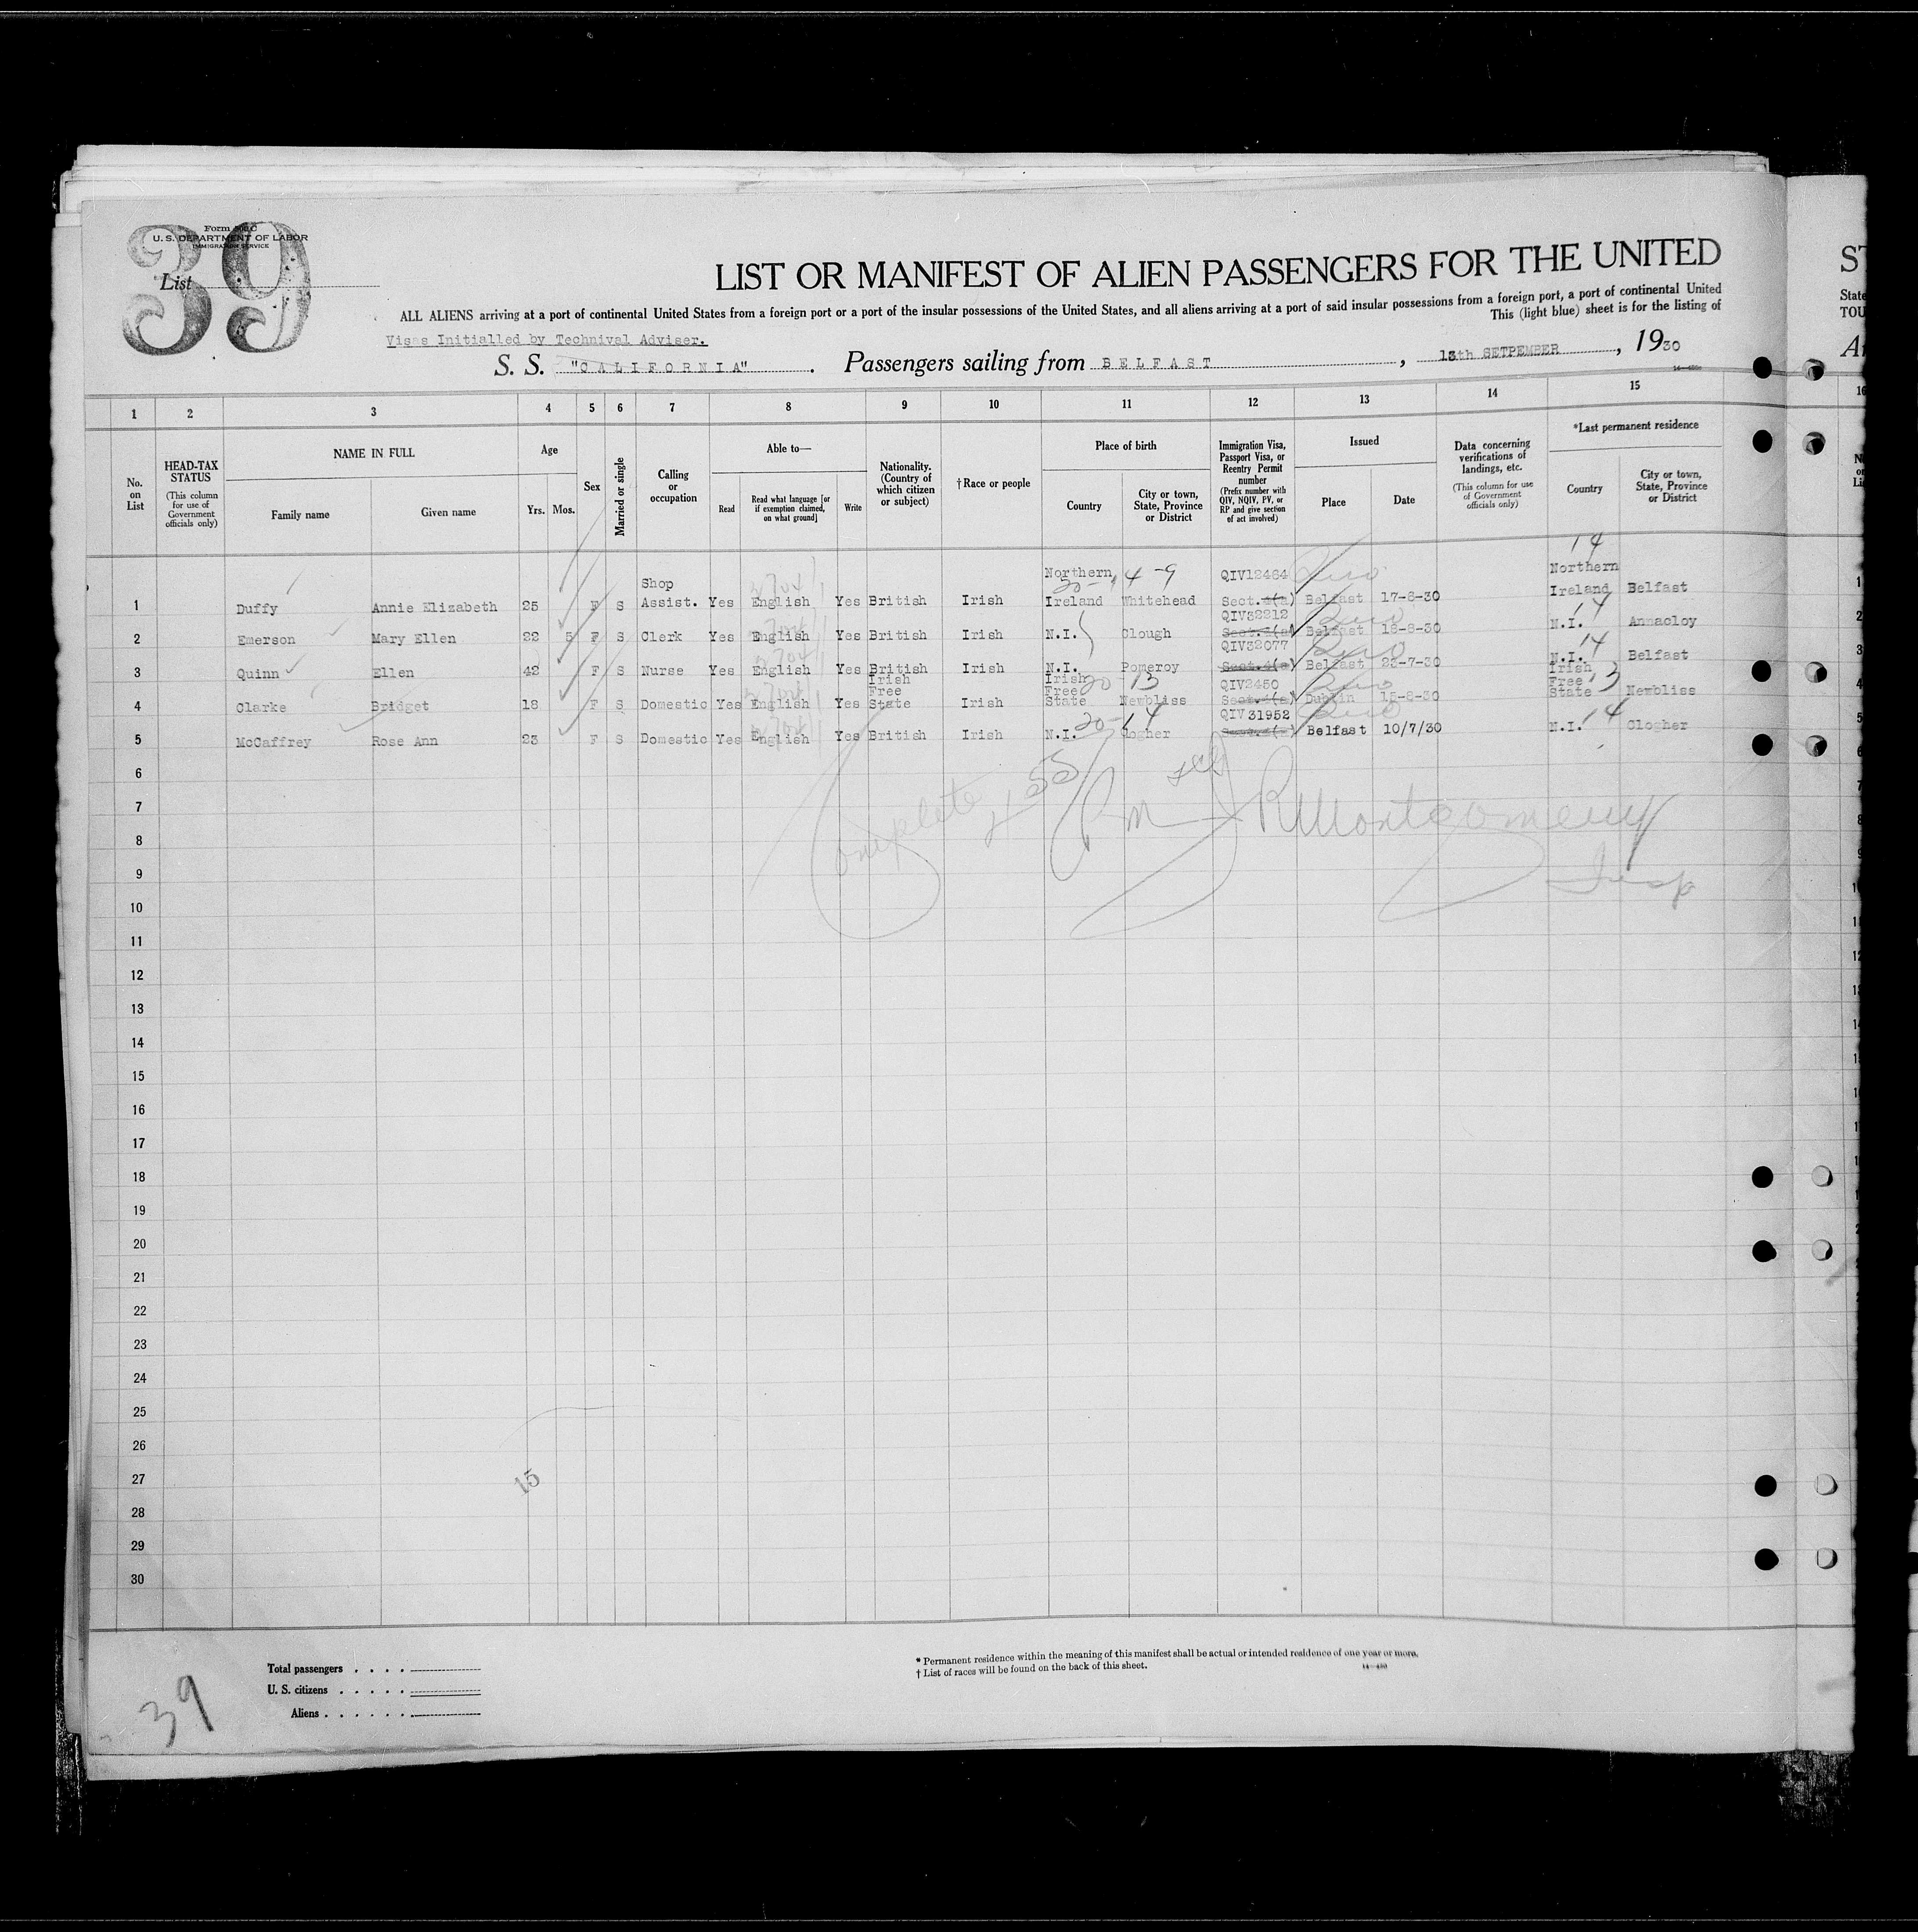 39
Form 500 C
U. S. DEPARTMENT OF LABOR
IMMIGRATION SERVICE
List
LIST OR MANIFEST OF ALIEN PASSENGERS FOR THE UNITED
ALL ALIENS arriving at a port of continental United States from a foreign port or a port of the insular possessions of the United States, and all aliens arriving at a port of said insular possessions from a foreign port, a port of continental United
This (light blue) sheet is for the listing of
Visas Initialled by Technival Adviser.
S. S. "CALIFORNIA" . Passengers sailing from BELFAST , 13th SETPEMBER , 1930
1 2 3 4 5 6 7 8 9 10 11 12 13 14 15
No. on List
HEAD-TAX STATUS
(This column for use of Government officials only)
NAME IN FULL
Family name Given name
Age
Yrs. Mos.
Sex
Married or single
Calling or occupation
Able to—
Read Read what language [or if exemption claimed, on what ground] Write
Nationality. (Country of which citizen or subject)
† Race or people
Place of birth
Country City or town, State, Province or District
Immigration Visa, Passport Visa, or Reentry Permit number
(Prefix number with QIV, NQIV, PV, or RP and give section of act involved)
Issued
Place Date
Data concerning verifications of landings, etc.
(This column for use of Government officials only)
*Last permanent residence
Country City or town, State, Province or District
1 Duffy Annie Elizabeth 25 F S Shop Assist. Yes English Yes British Irish Northern Ireland Whitehead QIV12464 Sect. Belfast 17-8-30 Northern Ireland Belfast
2 Emerson Mary Ellen 22 5 F S Clerk Yes English Yes British Irish N.I. Clough QIV32212 Belfast 18-8-30 N.I. Annacloy
3 Quinn Ellen 42 F S Nurse Yes English Yes British Irish N.I. Pomeroy QIV32077 Belfast 23-7-30 N.I. Belfast
4 Clarke Bridget 18 F S Domestic Yes English Yes Irish Free State Irish Irish Free State Newbliss QIV2450 Dublin 15-8-30 Irish Free State Newbliss
5 McCaffrey Rose Ann 23 F S Domestic Yes English Yes British Irish N.I. Clogher QIV 31952 Belfast 10/7/30 N.I. Clogher
6
7
Complete
RMMontgomery
8
9
Insp
10
11
12
13
14
15
16
17
18
19
20
21
22
23
24
25
26
27
15
28
29
30
Total passengers
U. S. citizens
Aliens
* Permanent residence within the meaning of this manifest shall be actual or intended residence of one year or more.
† List of races will be found on the back of this sheet.
39